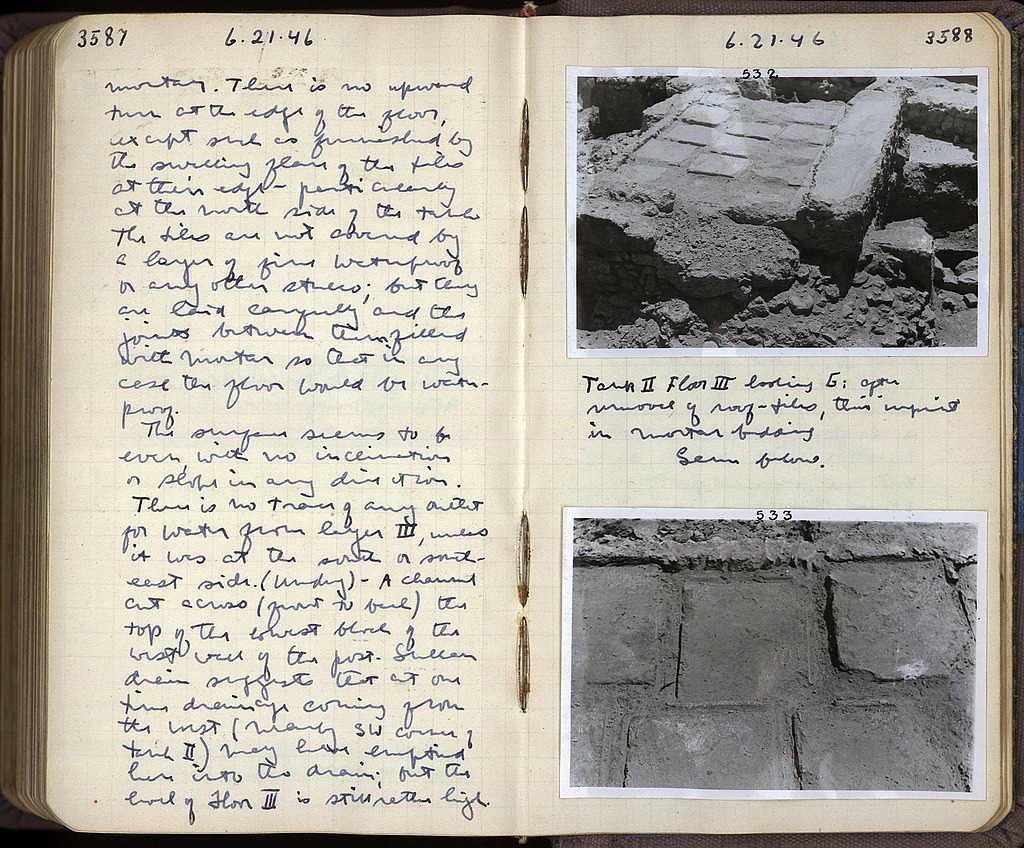 3587
6.21.46
mortar. There is no upward
turn at the edge of the floor,
except such as furnished by
the swelling flange of the tiles
at their edge - particularly
at the north side of the tank.
The tiles are not covered by
a layer of fine waterproof
or any other stucco; but they
are laid carefully and the
joints between them filled
with mortar so that in any
case the floor would be water-
proof.
The surface seems to be
even, with no inclination
or slope in any direction.
There is no trace of any outlet
for water from layer III, unless
it was at the south or south-
east side. - A channel
cut across (front to back) the
top of the lowest block of the
west wall of the post-Sullan
drain suggests that at one
time drainage coming from
the west (nearly SW corner of
tank II) may have emptied
here into the drain; but the
level of Floor III is still rather high.
6.21.46
3588
532
Tank II Floor III looking E: after
removal of roof-tiles, their imprint
in mortar bedding
Same below.
533